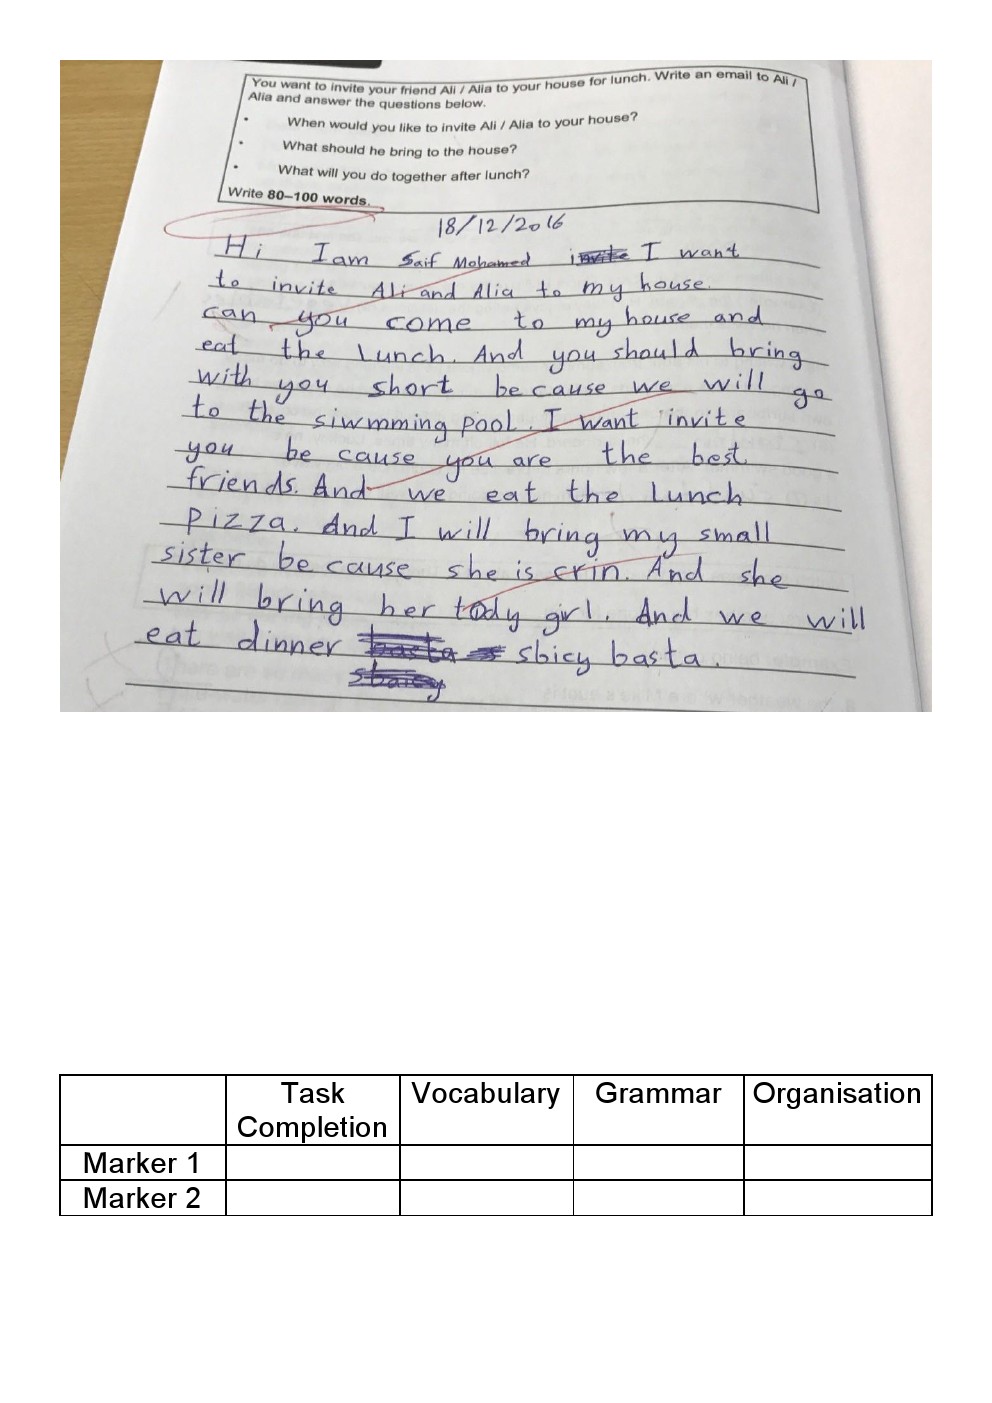 You want to invite your friend Ali / Alia to your house for lunch. Write an email to Ali /
Alia and answer the questions below.
• When would you like to invite Ali / Alia to your house?
• What should he bring to the house?
• What will you do together after lunch?
Write 80–100 words.
18/12/2016
Hi I am Saif Mohamed invite I want
to invite Ali and Alia to my house.
can you come to my house and
eat the lunch. And you should bring
with you short be cause we will go
to the siwmming pool. I want invite
you be cause you are the best
friends. And we eat the lunch
Pizza. And I will bring my small
sister be cause she is crin. And she
will bring her tody girl. And we will
eat dinner basta sbicy basta.
Task Completion Vocabulary Grammar Organisation
Marker 1
Marker 2